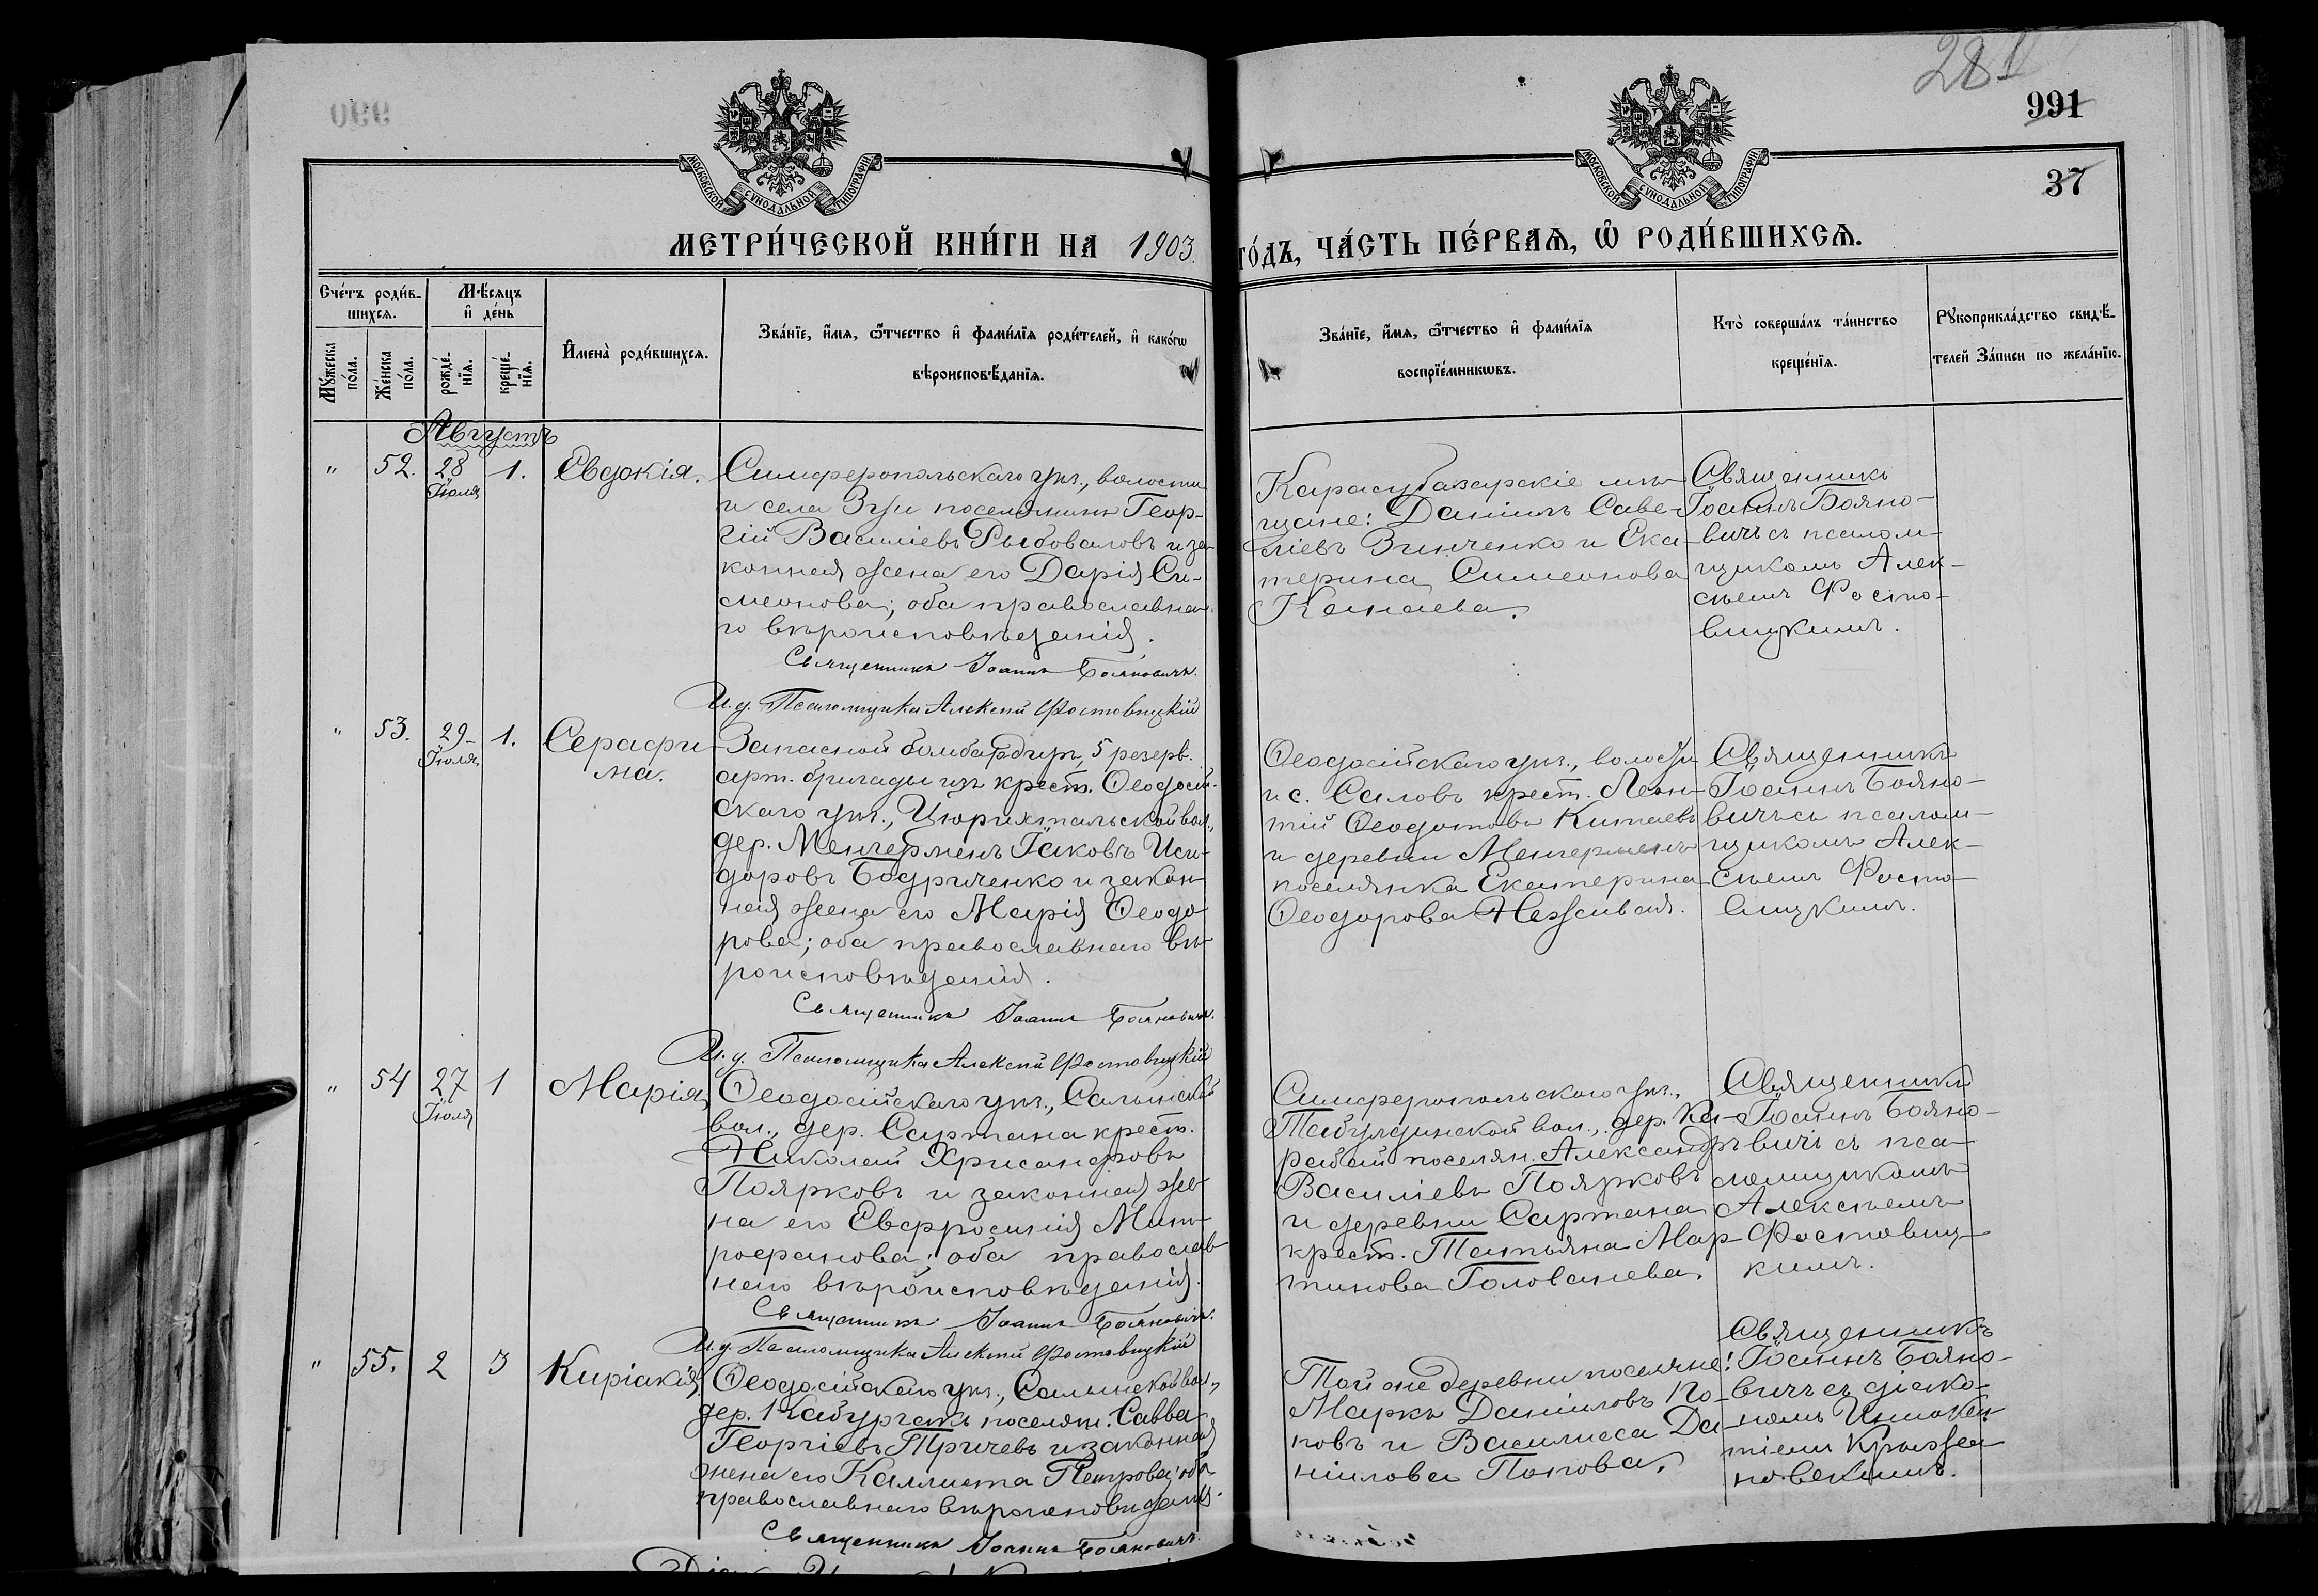 281
991
37
МОСКОВСКОЙ СѴНОДАЛЬНОЙ ТИПОГРАФІИ
МОСКОВСКОЙ СѴНОДАЛЬНОЙ ТИПОГРАФІИ
МЕТРИ́ЧЕСКОЙ КНИ́ГИ НА 1903.
ГО́ДЪ, ЧА́СТЬ ПЕ́РВАѦ, Ѽ РОДИ́ВШИХСѦ.
Сче́тъ роди́в-
шихсѧ.
Мѣ́сѧцъ
и҆ де́нь
Мꙋ́жеска
по́ла.
Же́нска
по́ла.
рожде́-
нїѧ.
креще́-
нїѧ.
И҆мена̀ роди́вшихсѧ.
Зва́нїе, и҆́мѧ, ѻ҆́тчество и҆ фами́лїѧ роди́телей, и҆ како́гѡ
вѣроисповѣ́данїѧ.
Зва́нїе, и҆́мѧ, ѻ҆́тчество и҆ фами́лїѧ
воспрїе́мникѡвъ.
Кто̀ соверша́лъ та́инство
креще́нїѧ.
Рꙋкоприкла́дство свидѣ́-
телей За́писи по жела́нїю.
Августъ
" 52. 28 Іюля 1. Евдокія.
Симферопольскаго уѣз., волости
и села Зуи поселянинъ Геор-
гій Василіевъ Рыбоваловъ и за-
конная жена его Дарія Си-
меонова; оба православна-
го вѣроисповѣданія.
Священникъ Іоаннъ Бояновичъ.
И.д. Псаломщика Алексѣй Фостовицкій
Карасубазарскіе мѣ-
щане: Даніилъ Саве-
ліевъ Зинченко и Ека-
терина Симеонова
Канаева.
Священникъ
Іоаннъ Бояно-
вичъ съ псалом-
щикомъ Алек-
сѣемъ Фосто-
вицкимъ.
" 53. 29 Іюля 1. Серафи-
ма.
Запасной бомбардиръ, 5 резерв.
арт. бригады изъ крест. Ѳеодосій-
скаго уѣз., Цюрихтальской вол.,
дер. Менгерменъ Іаковъ Иси-
доровъ Бодриченко и закон-
ная жена его Марія Ѳеодо-
рова; оба православнаго вѣ-
роисповѣданія.
Священникъ Іоаннъ Бояновичъ.
И.д. Псаломщика Алексѣй Фостовицкій
Ѳеодосійскаго уѣз., волости
и с. Саловъ крест. Леон-
тій Ѳеодотовъ Китаевъ
и деревни Менгерменъ
поселянка Екатерина
Ѳеодорова Нежсивая.
Священникъ
Іоаннъ Бояно-
вичъ съ псалом-
щикомъ Алек-
сѣемъ Фосто-
вицкимъ.
" 54 27 Іюля 1 Марія,
Ѳеодосійскаго уѣз., Салынской
вол., дер. Сартана крест.
Николай Хрисанфовъ
Поярковъ и законная же-
на его Евфросинія Мит-
рофанова; оба православ-
наго вѣроисповѣданія.
Священникъ Іоаннъ Бояновичъ.
И.д. Псаломщика Алексѣй Фостовицкій
Симферопольскаго уѣз.,
Табулдинской вол., дер. Ка-
рабай поселян. Александръ
Василіевъ Поярковъ
и деревни Сартана
крест. Татьяна Мар-
тинова Голованева.
Священникъ
Іоаннъ Бояно-
вичъ съ пса-
ломщикомъ
Алексѣемъ
Фостовиц-
кимъ.
" 55. 2 3 Киріакія,
Ѳеодосійскаго уѣз., Салынской вол.,
дер. Кабурчакъ поселян. Савва
Георгіевъ Тричевъ и законная
жена его Каллиста Петрова; оба
православнаго вѣроисповѣданія.
Священникъ Іоаннъ Бояновичъ.
Той же деревни поселяне:
Маркъ Даніиловъ По-
повъ и Василиса Да-
ніилова Попова.
Священникъ
Іоаннъ Бояно-
вичъ съ діако-
номъ Иннокен-
тіемъ Крыжса-
новскимъ.